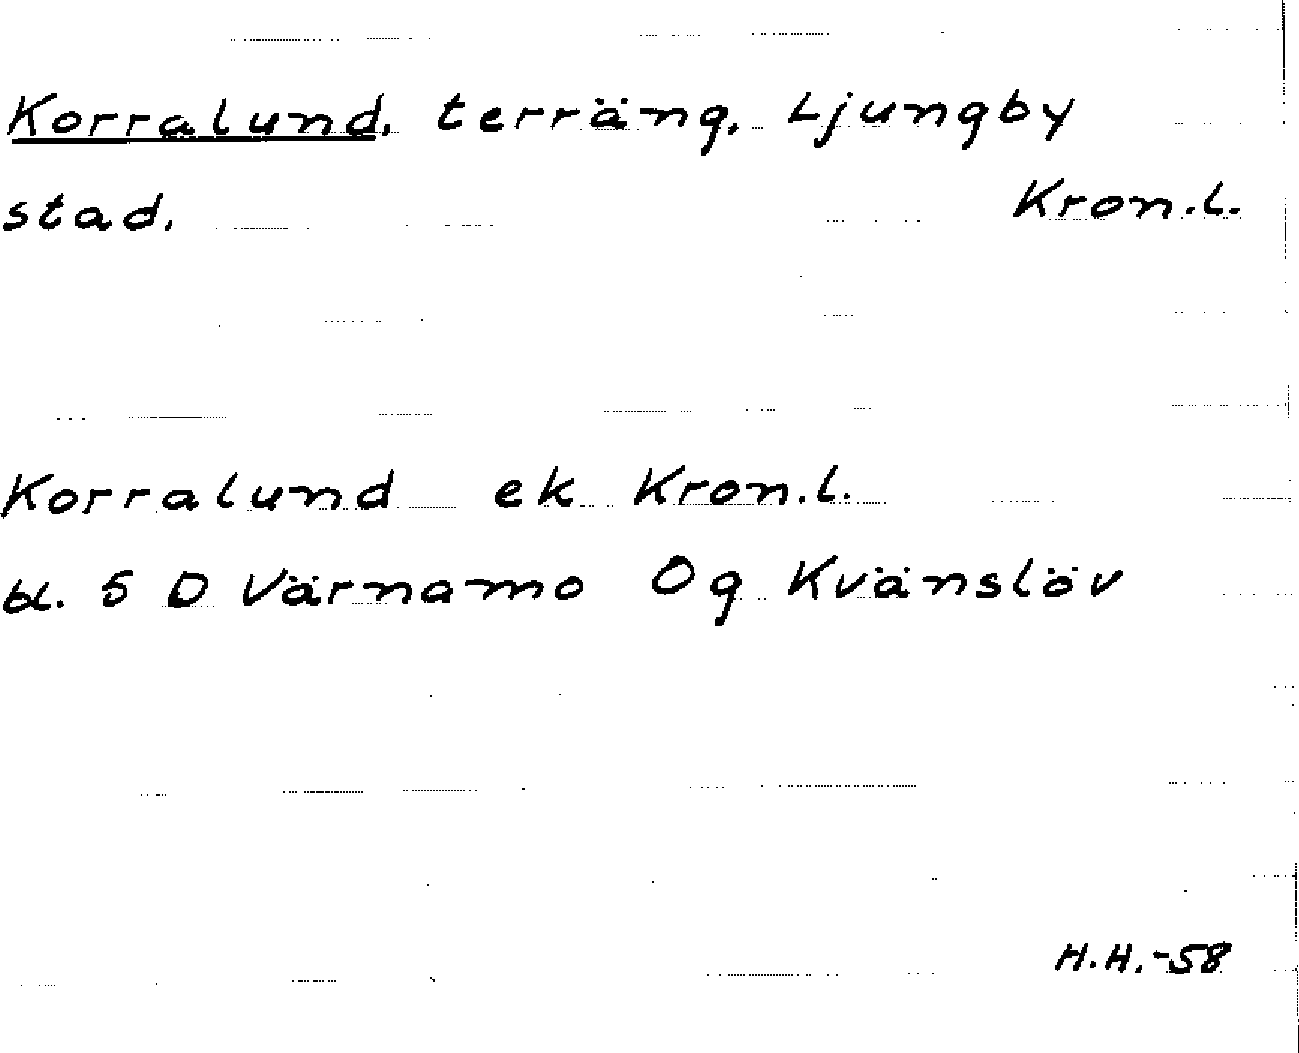 Korralund, terräng, Ljungby
stad. Kron.l.
Korralund ek Kron.l.
bl. 5 D Värnamo Og Kvänslöv
H.H.-58